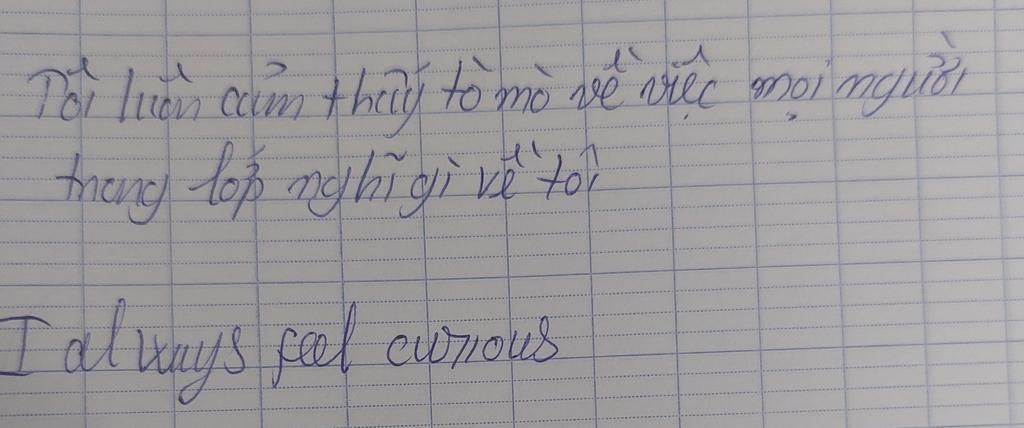 Tôi luôn cảm thấy tò mò về việc mọi người
trong lớp nghĩ gì về tôi
I always feel curious